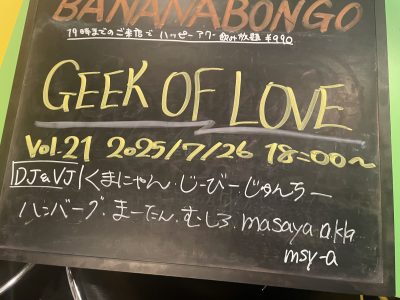 BANANABONGO
19時までのご来店で ハッピーアワー 飲み放題 ¥990
GEEK OF LOVE
Vol.21 2025/7/26 18:00〜
DJ&VJ くまにゃん・じーびーじゅんちー
ハンバーグ・まーたん・むしろ・masaya aka
msy-a